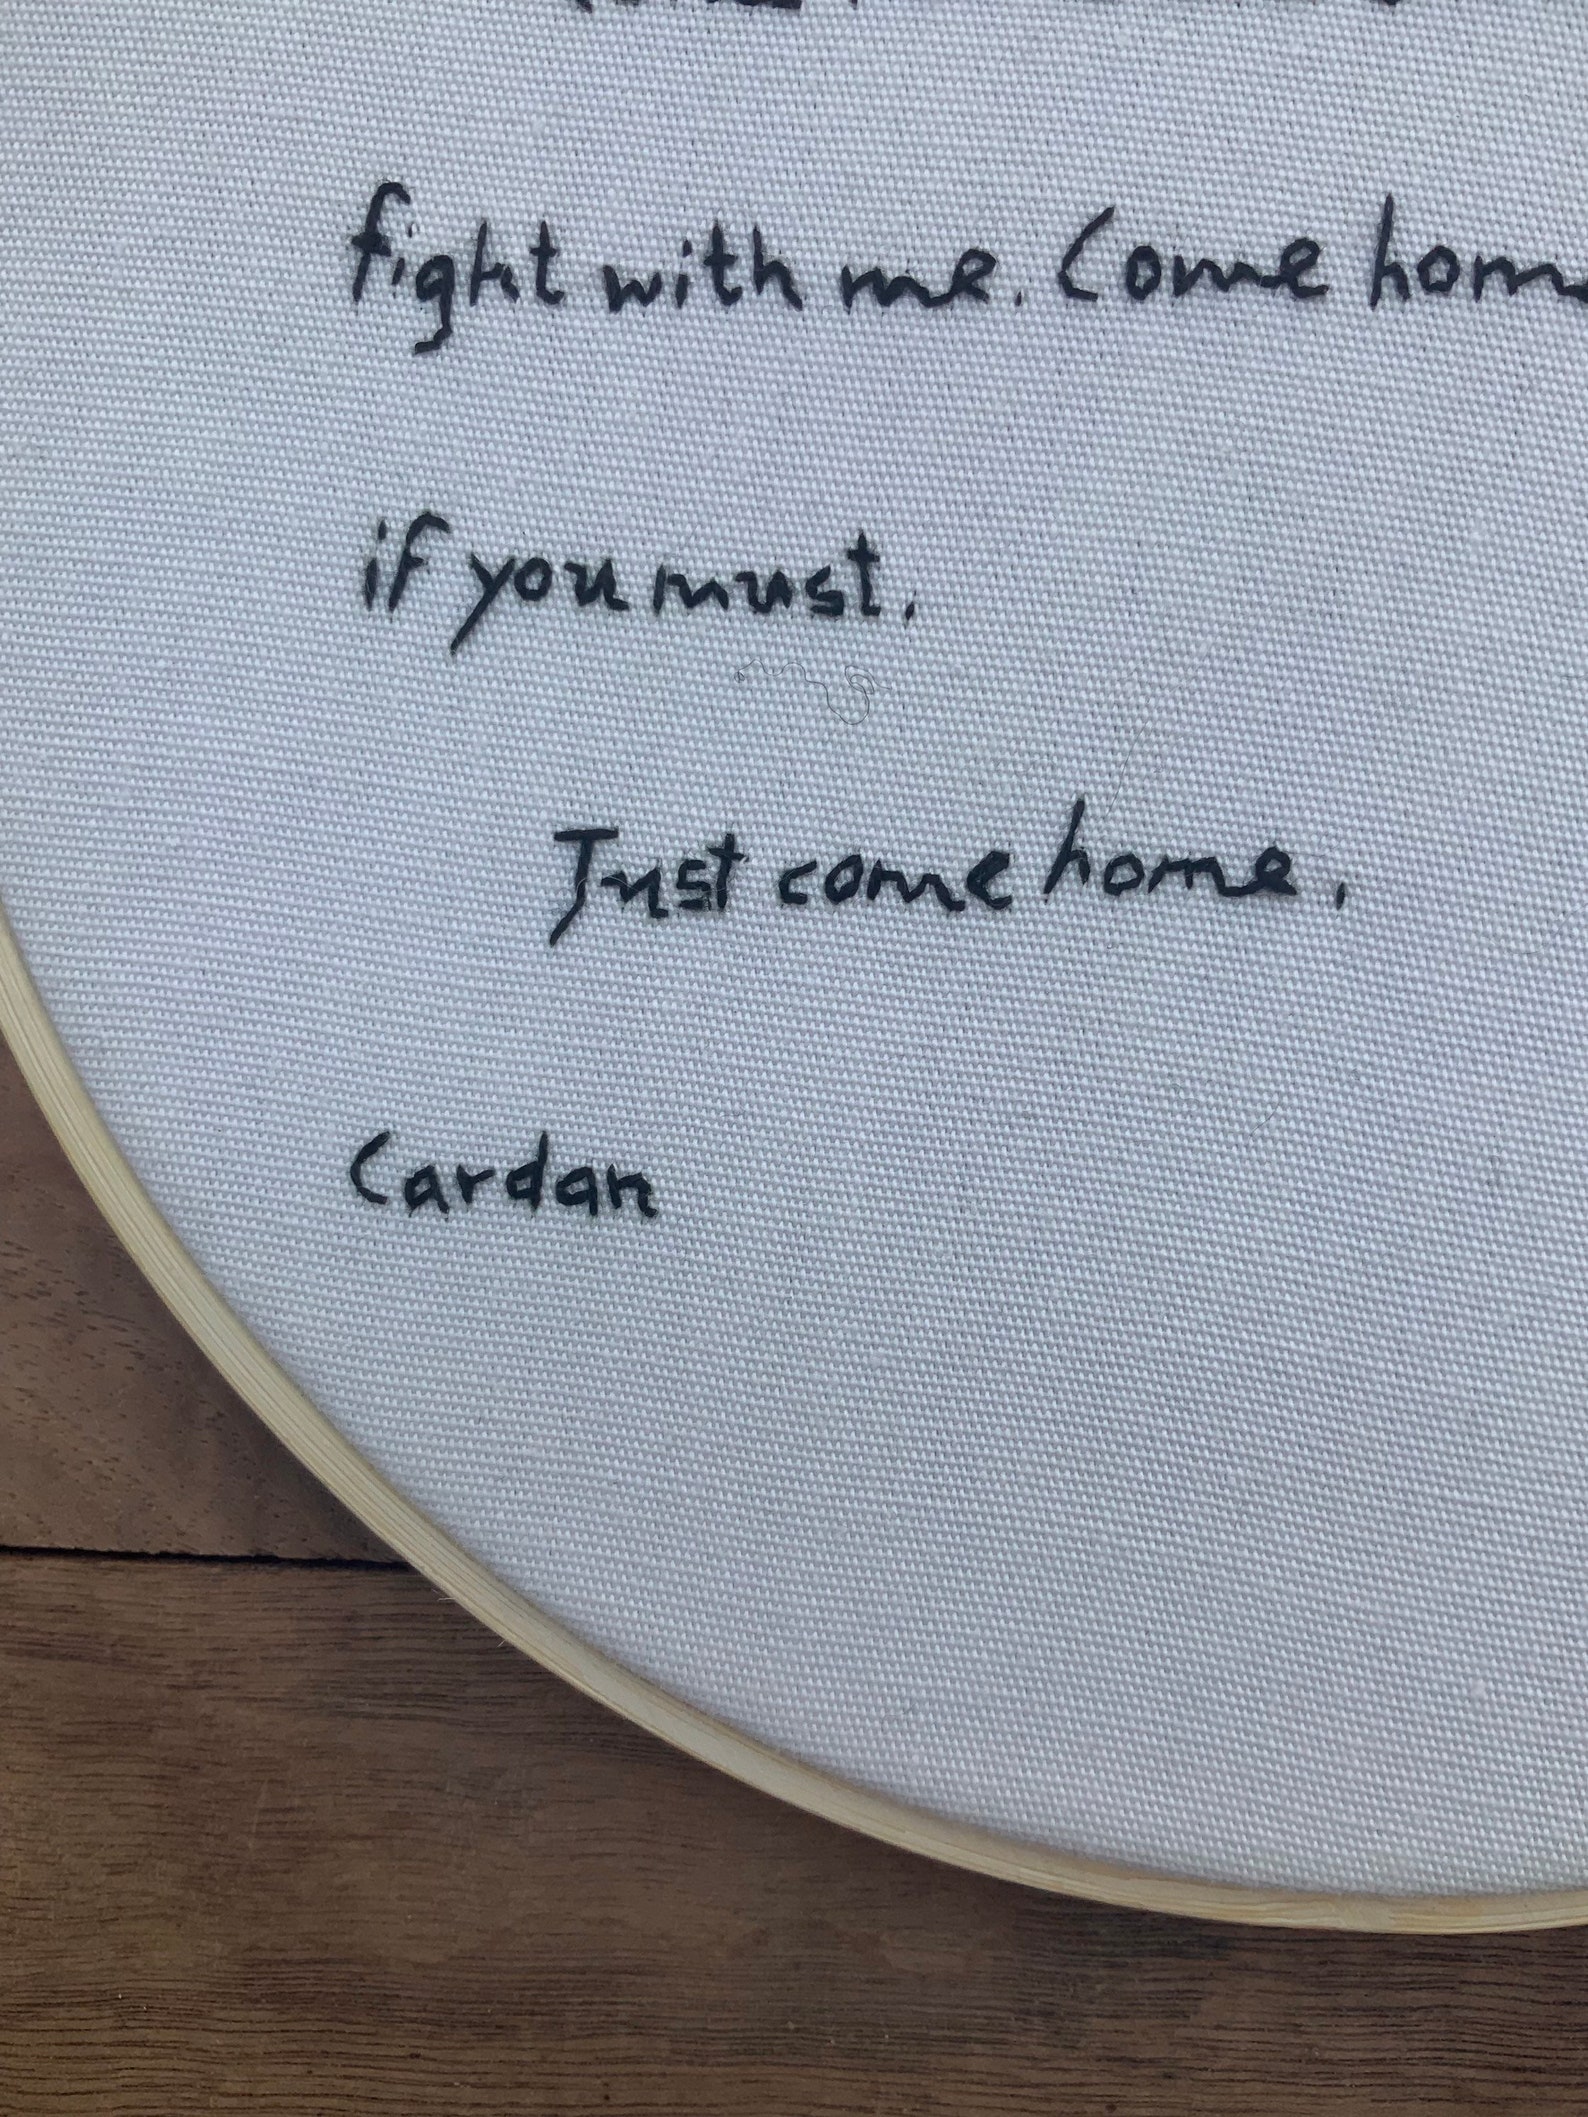 fight with me. Come home
if you must.
Just come home.
Cardan